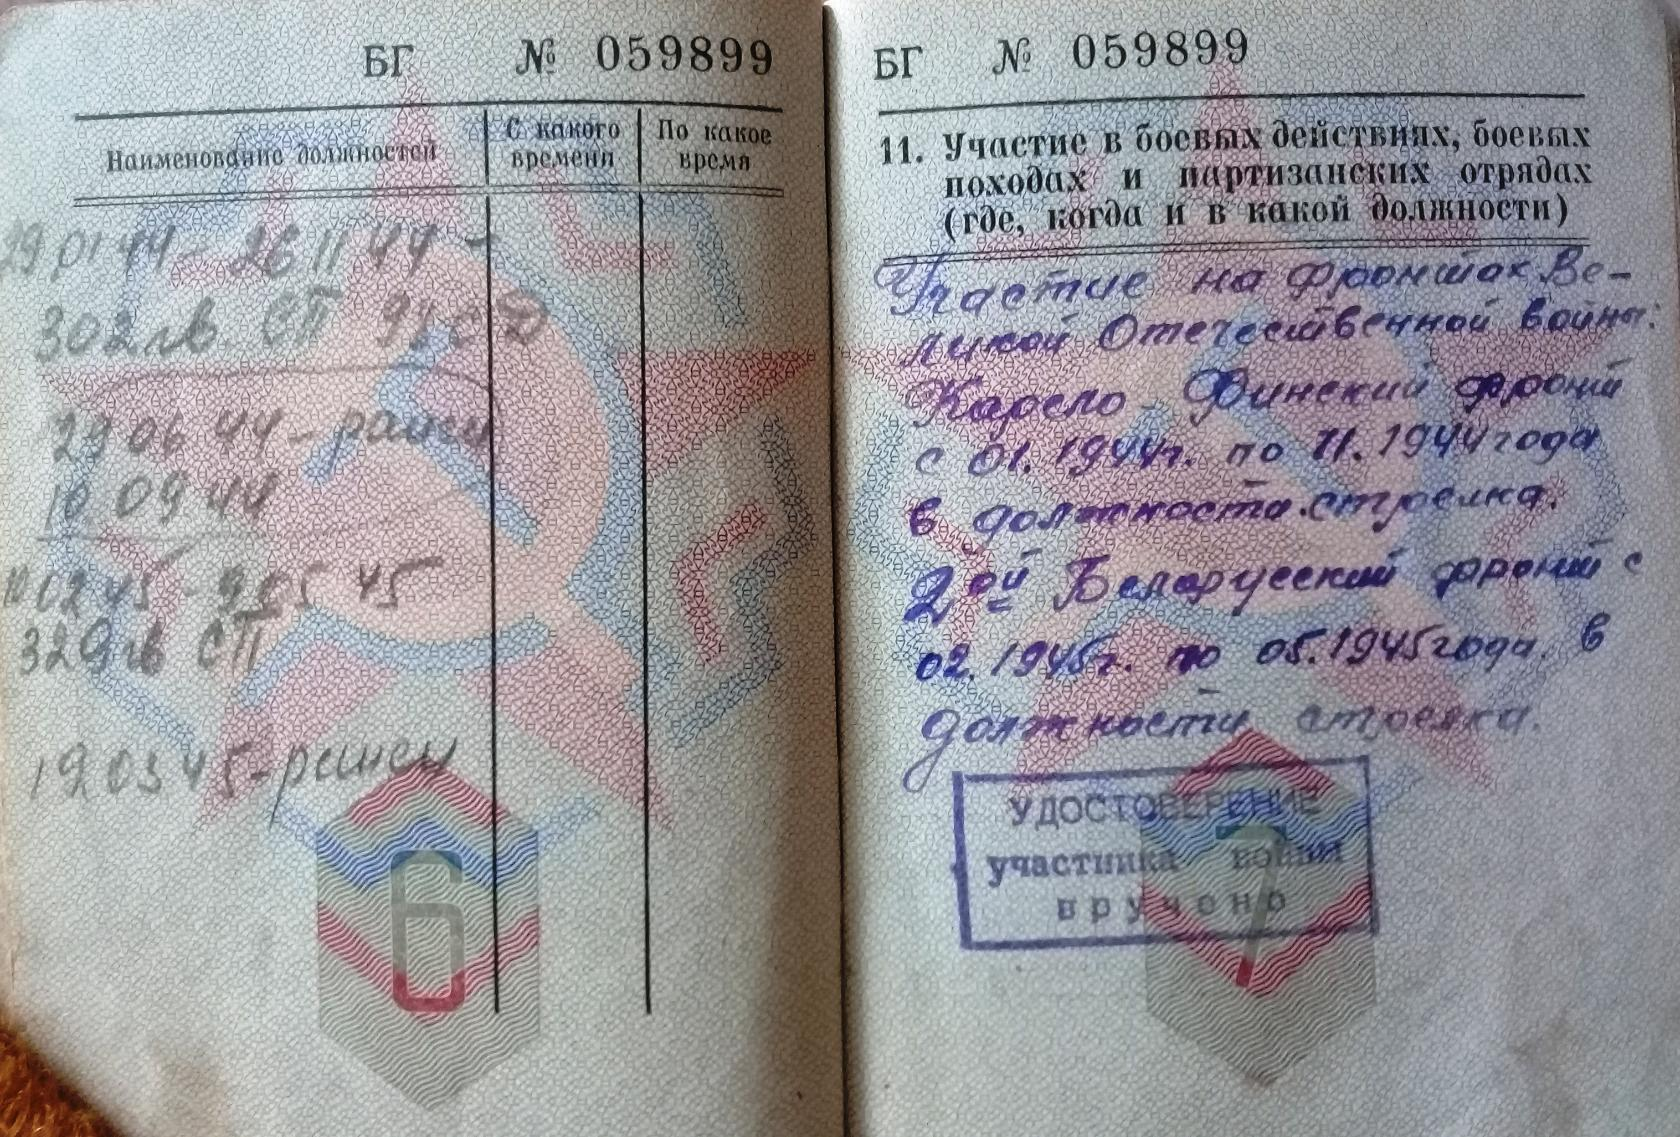 БГ № 059899
Наименование должностей
С какого времени
По какое время
29 01 44 - 26 11 44 -
302 гв. СП
29 06 44 - ранен
10 09 44
10 02 45 - 9 05 45
329 гв СП
19 03 45 - ранен
6
БГ № 059899
11. Участие в боевых действиях, боевых
походах и партизанских отрядах
(где, когда и в какой должности)
Участие на фронтах Ве-
ликой Отечественной войны:
Карело Финский фронт
с 01.1944г. по 11.1944 года
в должности стрелка.
2ой Белорусский фронт с
02.1945г. по 05.1945 года. в
должности стрелка.
УДОСТОВЕРЕНИЕ
участника войны
вручено
7